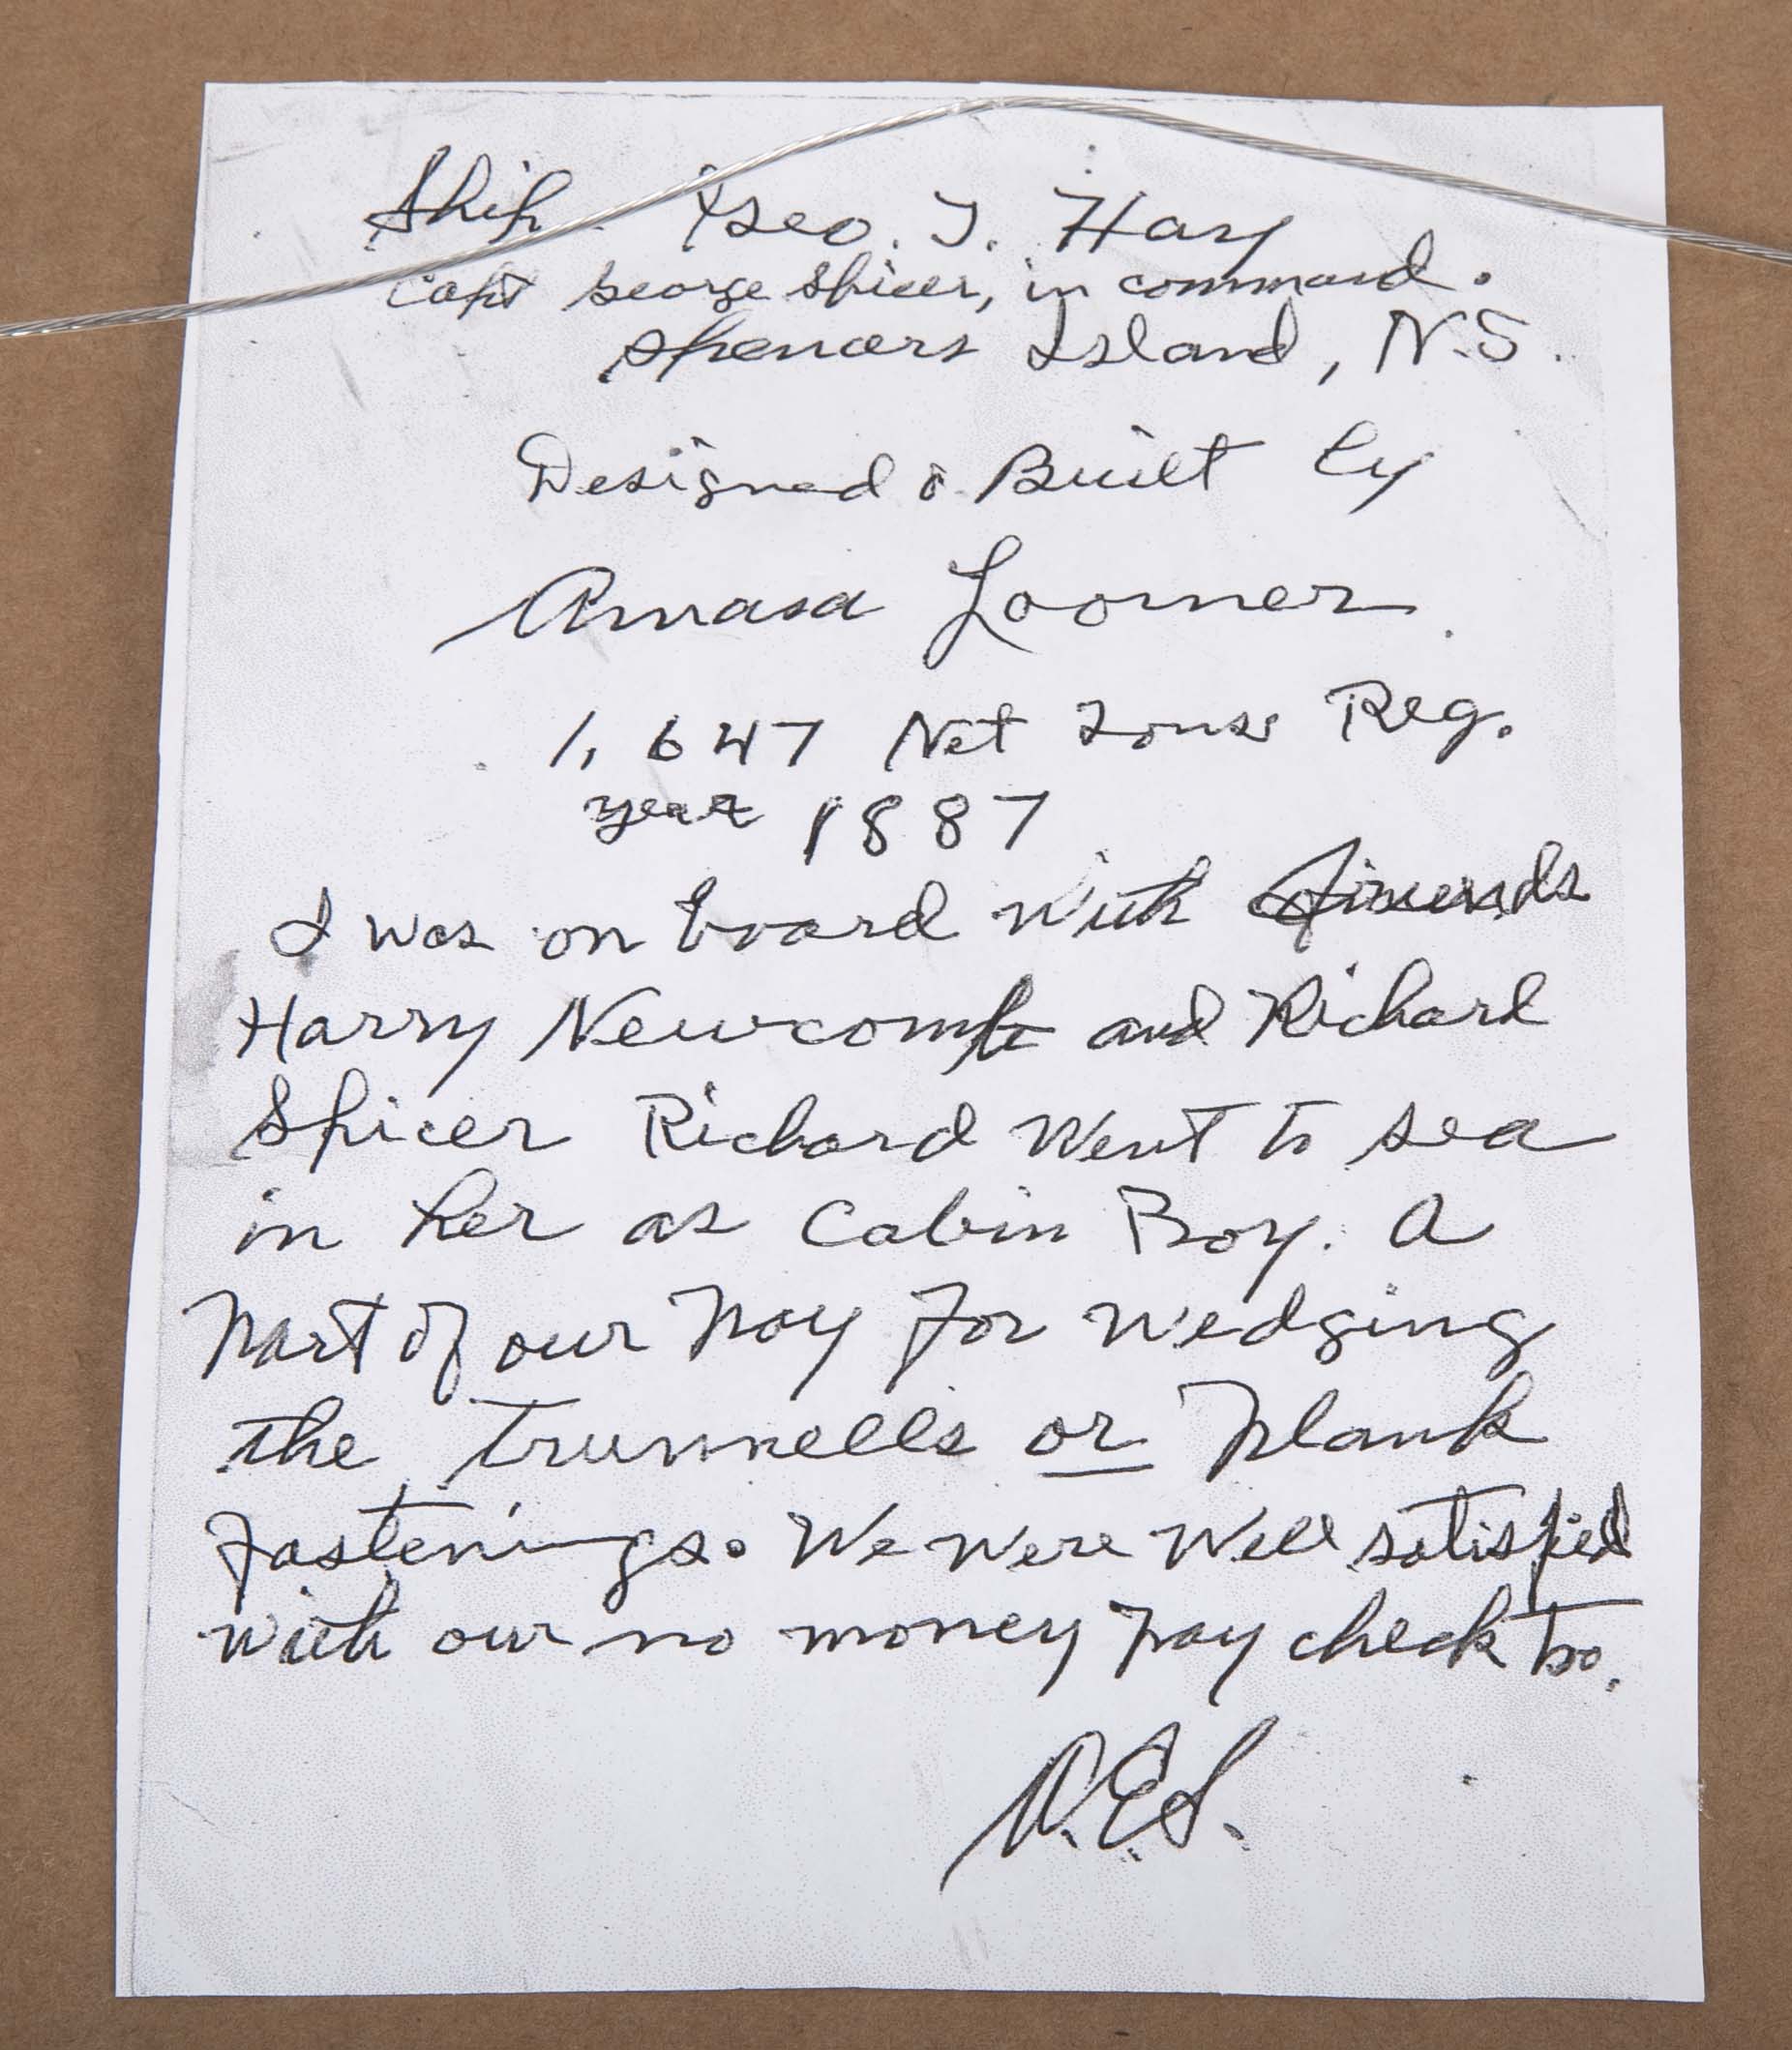 Ship Geo. T. Hay
Capt George Spicer, in command.
Spencers Island, N.S.
Designed & Built by
Amasa Loomer.
1,647 Net Tons Reg.
year 1887
I was on board with friends
Harry Newcombe and Richard
Spicer Richard Went to sea
in her as Cabin Boy. A
Part of our Pay For Wedging
the Trunnells or Plank
Fastenings. We were Well satisfied
with our no money Pay check too.